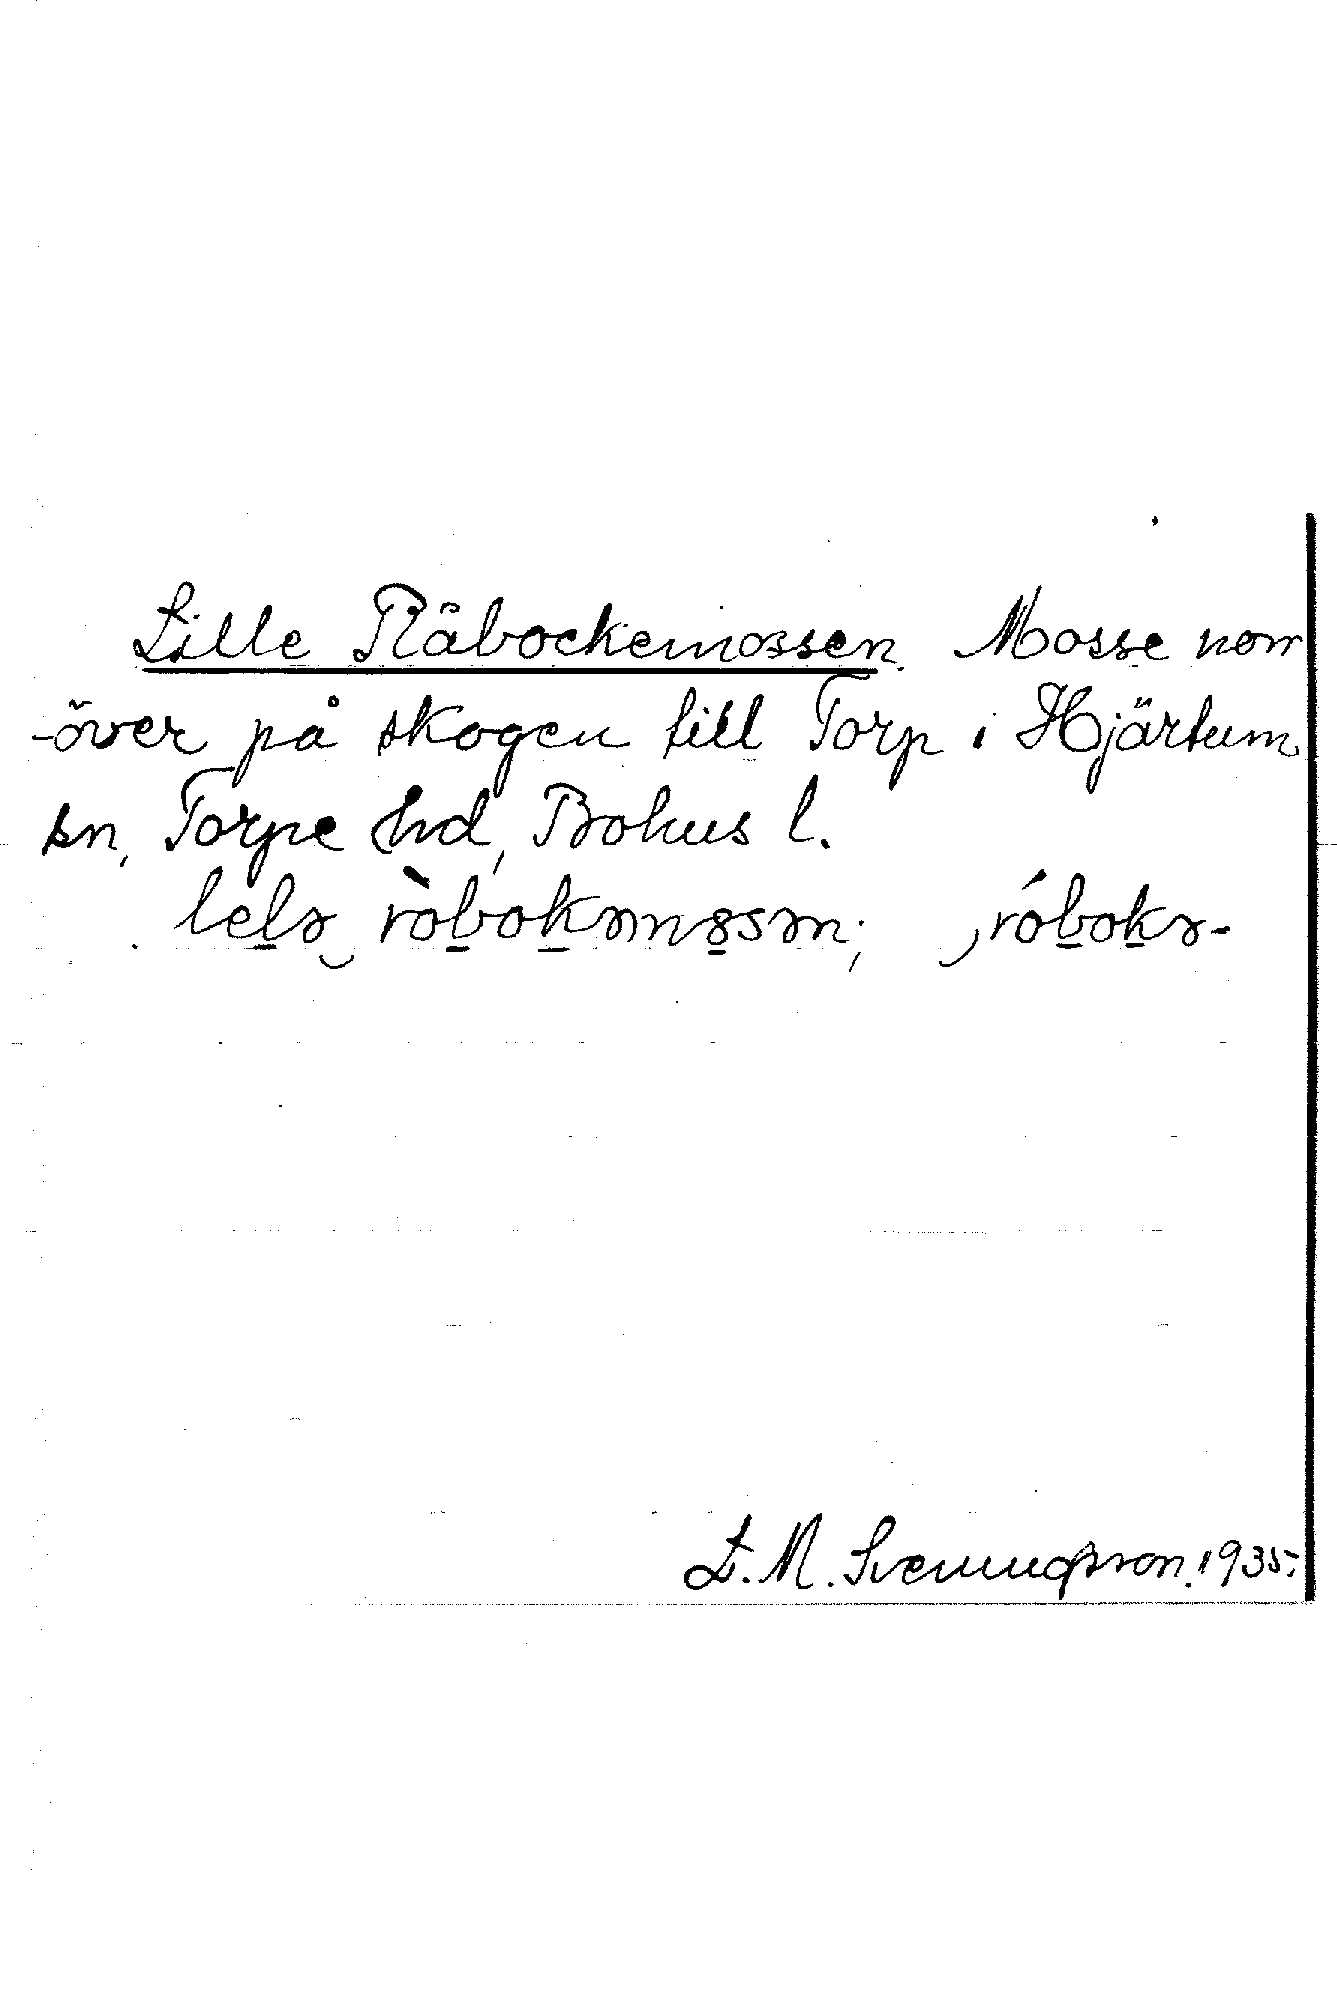 Lille Råbockemossen. Mosse norr
-över på skogen till Torp i Hjärtum
sn, Torpe hd, Bohus l.
lelə ròbokəmosən; róbokə-
L. M. Svenungsson. 1935.